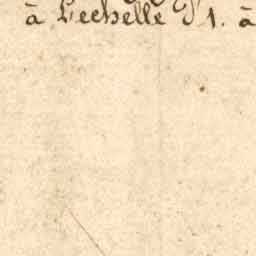 à Lechelle P 1. à